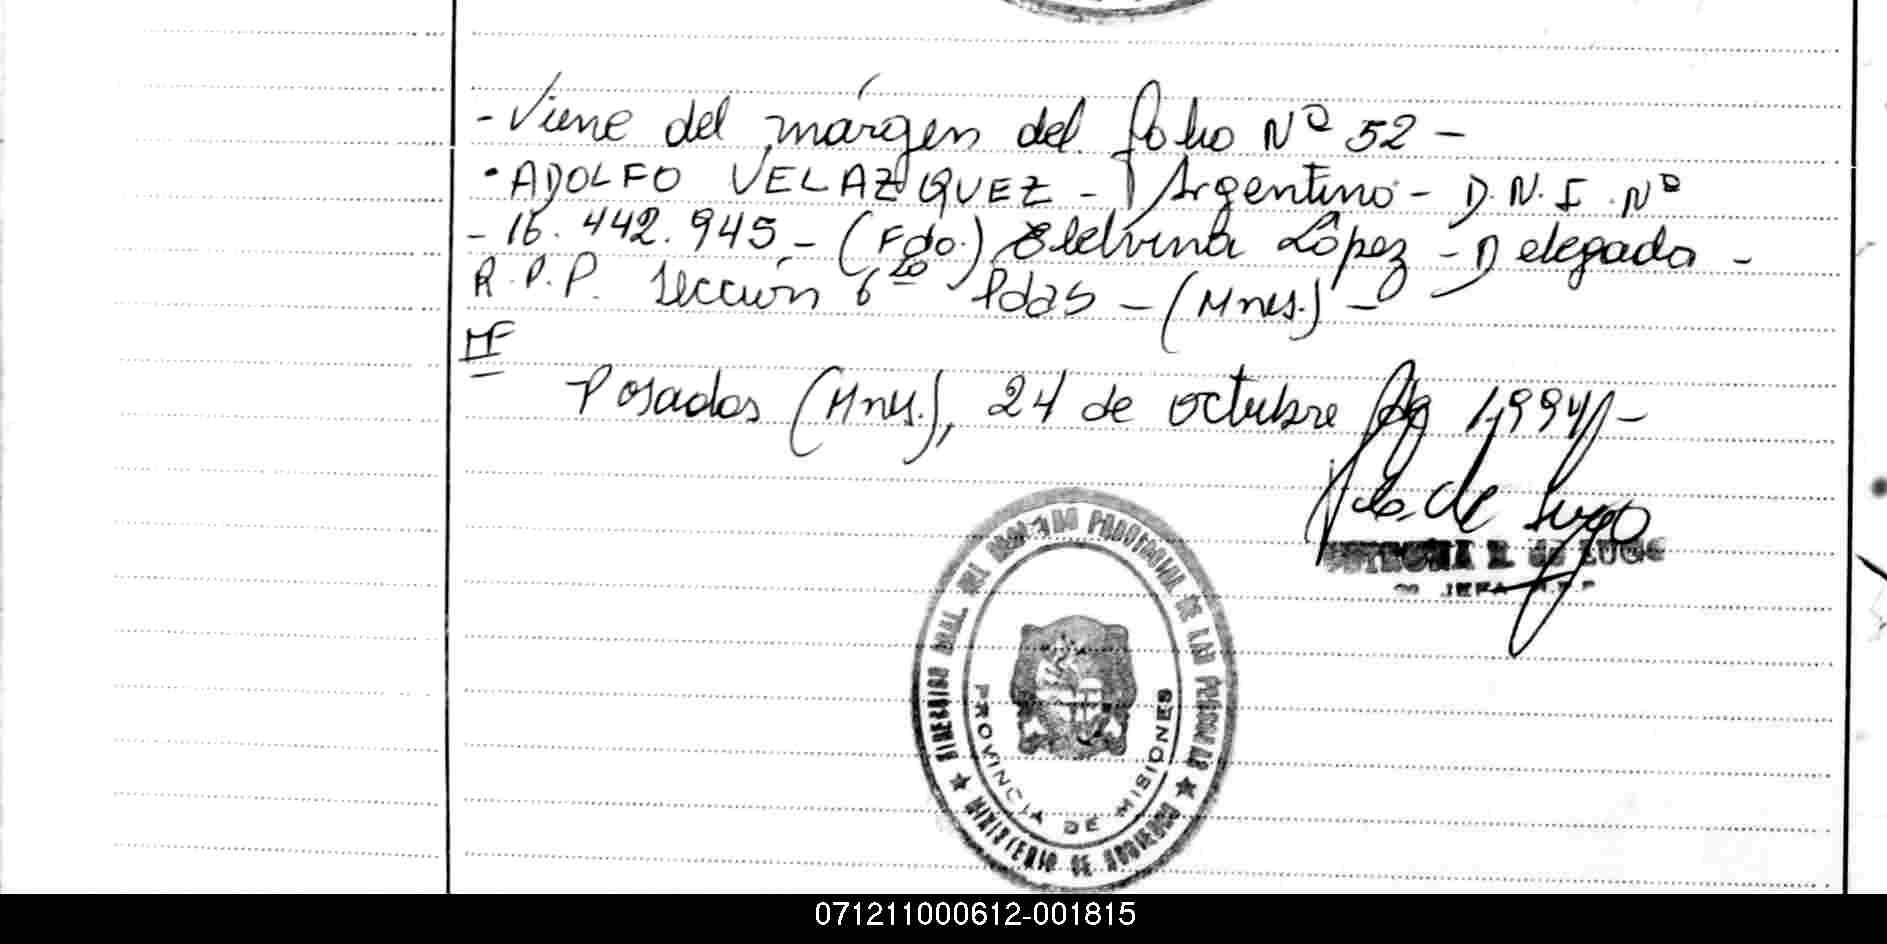 - Viene del márgen del folio Nº 52 -
• ADOLFO VELAZQUEZ - Argentino - D.N.I. Nº
- 16.442.945 - (Fdo.) Etelvina López - Delegada -
R.P.P. sección 6ta Pdas - (Mnes.) -
Posadas (Mnes.), 24 de octubre de 1.994 -
de Lugo
R. de LUGO
JEFA R.P.P
DIRECCION GRAL. DEL REGISTRO PROVINCIAL DE LAS PERSONAS
PROVINCIA DE MISIONES
★ MINISTERIO DE GOBIERNO ★
071211000612-001815